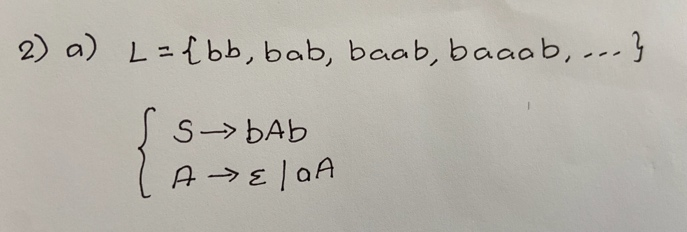 2) a) L = {bb, bab, baab, baaab, ... }
S → bAb
A → ε | aA